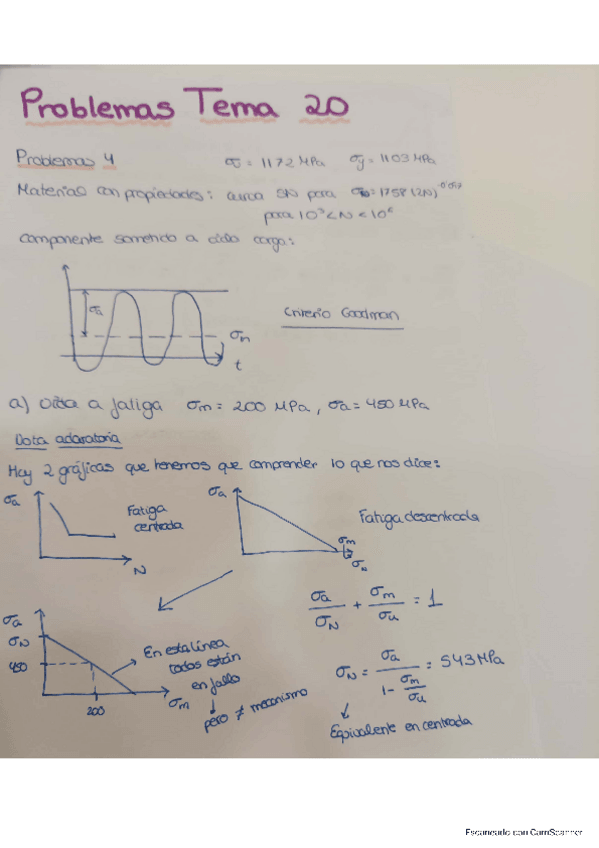 Problemas Tema 20
Problemas 4 σ = 1172 MPa σy = 1103 MPa
Material con propiedades: curva SN para = 1758 (2N)
para 10³ < N < 10⁶
componente sometido a ciclo carga:
σa
σm
t
Criterio Goodman
a) Vida a fatiga σm = 200 MPa, σa = 450 MPa
Nota aclaratoria
Hay 2 gráficas que tenemos que comprender lo que nos dice:
σa
N
Fatiga
centrada
σa
σm
σu
Fatiga descentrada
σa
σN
450
200
σm
En esta línea
todos están
en fallo
pero ≠ mecanismo
σa/σN + σm/σu = 1
σN = σa / (1 - σm/σu) = 543 MPa
Equivalente en centrada
Escaneado con CamScanner